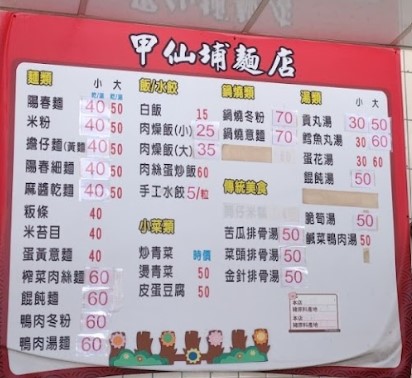 甲仙埔麵店
麵類 小 大
乾/湯 乾/湯
陽春麵 40 50
米粉 40 50
擔仔麵(黃麵) 40 50
陽春細麵 40 50
麻醬乾麵 40 50
粄條 40
米苔目 40
蛋黃意麵 40
榨菜肉絲麵 60
餛飩麵 60
鴨肉冬粉 60
鴨肉湯麵 60
飯/水餃
白飯 15
肉燥飯(小) 25
肉燥飯(大) 35
肉絲蛋炒飯 60
手工水餃 5/粒
小菜類
炒青菜 時價
燙青菜 50
皮蛋豆腐 50
鍋燒類
鍋燒冬粉 70
鍋燒意麵 70
傳統美食
苦瓜排骨湯 50
菜頭排骨湯 50
金針排骨湯 50
湯類 小 大
貢丸湯 30 50
鱈魚丸湯 30 60
蛋花湯 30 60
餛飩湯 50
脆筍湯 50
鹹菜鴨肉湯 50